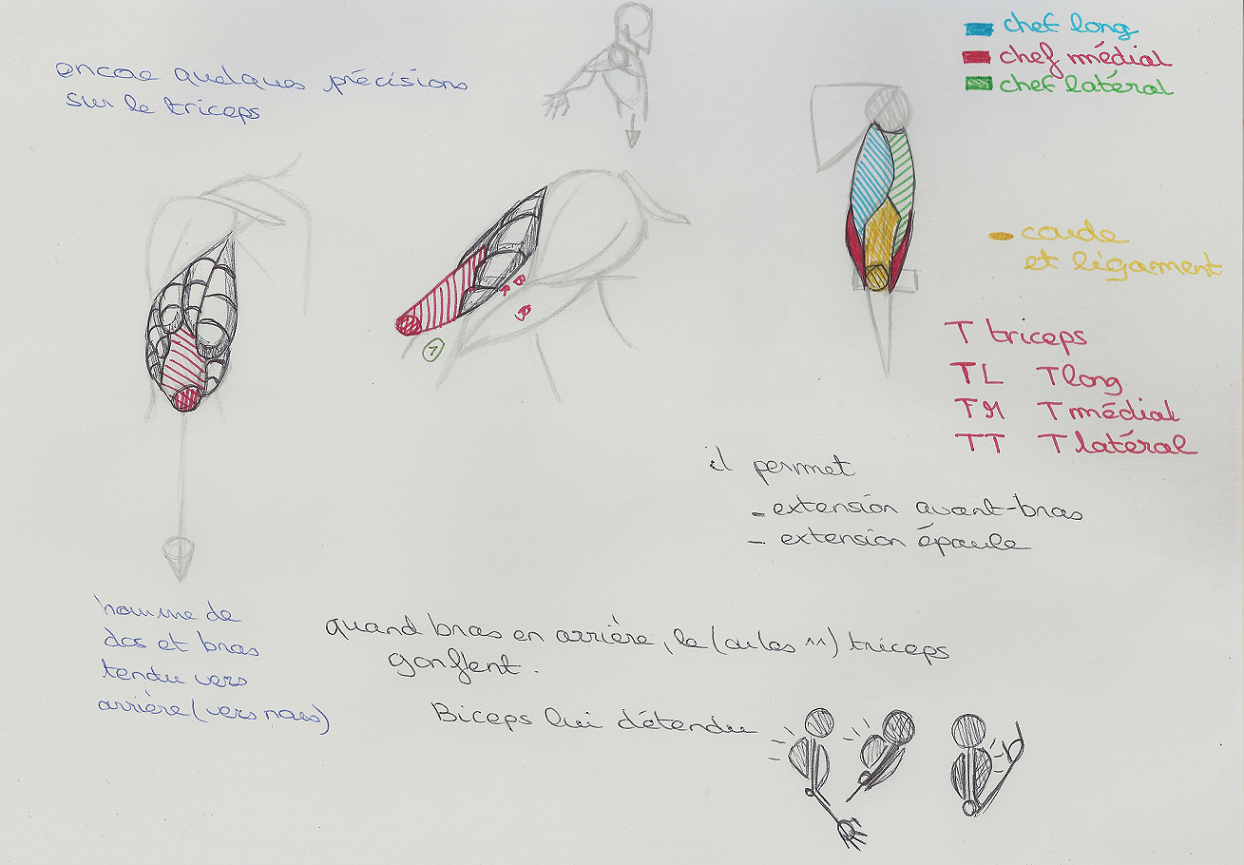 encore quelques précisions
sur le triceps
chef long
chef médial
chef latéral
coude
et légament
T triceps
TL T long
TM T médial
TT T latéral
il permet
- extension avant-bras
- extension épaule
1
homme de
dos et bras
tendu vers
arrière (vers nous)
quand bras en arrière, le (ou les 
) triceps
gonflent.
Biceps lui détendu